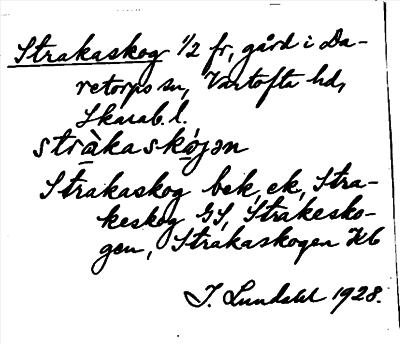 Strakaskog 1/2 fr, gård i Da-
retorps sn, Vartofta hd,
Skarab. l.
stràkaskójən
Strakaskog bek, ek, Stra-
keskog GS, Strakesko-
gen, Strakaskogen Hb
J. Lundahl 1928.